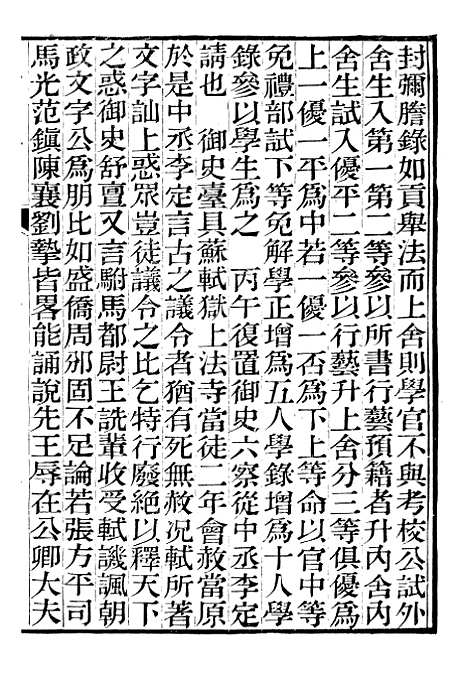 封彌謄錄如貢舉法而上舍則學官不與考校公試外
舍生入第一第二等參以所書行藝預籍者升內舍內
舍生試入優平二等參以行藝升上舍分三等俱優爲
上一優一平爲中若一優一否爲下上等命以官中等
免禮部試下等免解學正增爲五人學錄增爲十人學
錄參以學生爲之　丙午復置御史六察從中丞李定
請也　御史臺具蘇軾獄上法寺當徒二年會赦當原
於是中丞李定言古之議令者猶有死無赦况軾所著
文字訕上惑眾豈徒議令之比乞特行廢絕以釋天下
之惑御史舒亶又言駙馬都尉王詵輩收受軾譏諷朝
政文字公爲朋比如盛僑周邠固不足論若張方平司
馬光范鎭陳襄劉摯皆畧能誦說先王辱在公卿大夫